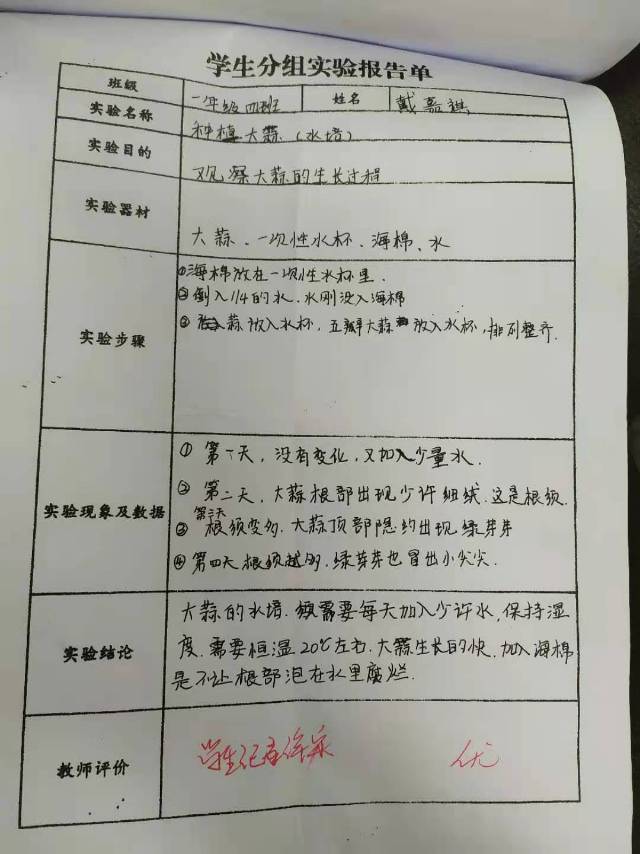 学生分组实验报告单
班级 一年级四班 姓名 戴嘉祺
实验名称 种植大蒜（水培）
实验目的 观察大蒜的生长过程
实验器材 大蒜、一次性水杯、海棉、水
实验步骤
①海棉放在一次性水杯里.
②倒入1/4的水.水刚没入海棉
③ 蒜放入水杯，五瓣大蒜放入水杯，排列整齐.
实验现象及数据
① 第一天，没有变化，又加入少量水.
② 第二天，大蒜根部出现少许细绒.这是根须.
第三天
③ 根须变多.大蒜顶部隐约出现绿芽芽
④ 第四天根须越多.绿芽芽也冒出小尖尖.
实验结论
大蒜的水培.须需要每天加入少许水，保持湿
度.需要恒温20℃左右.大蒜生长的快.加入海棉
是不让根部泡在水里腐烂.
教师评价 学生记者 优